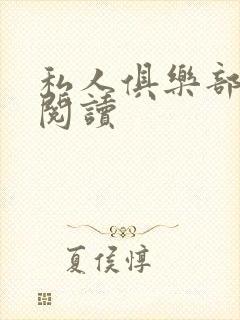 私人俱樂部
閱讀
夏侯惇